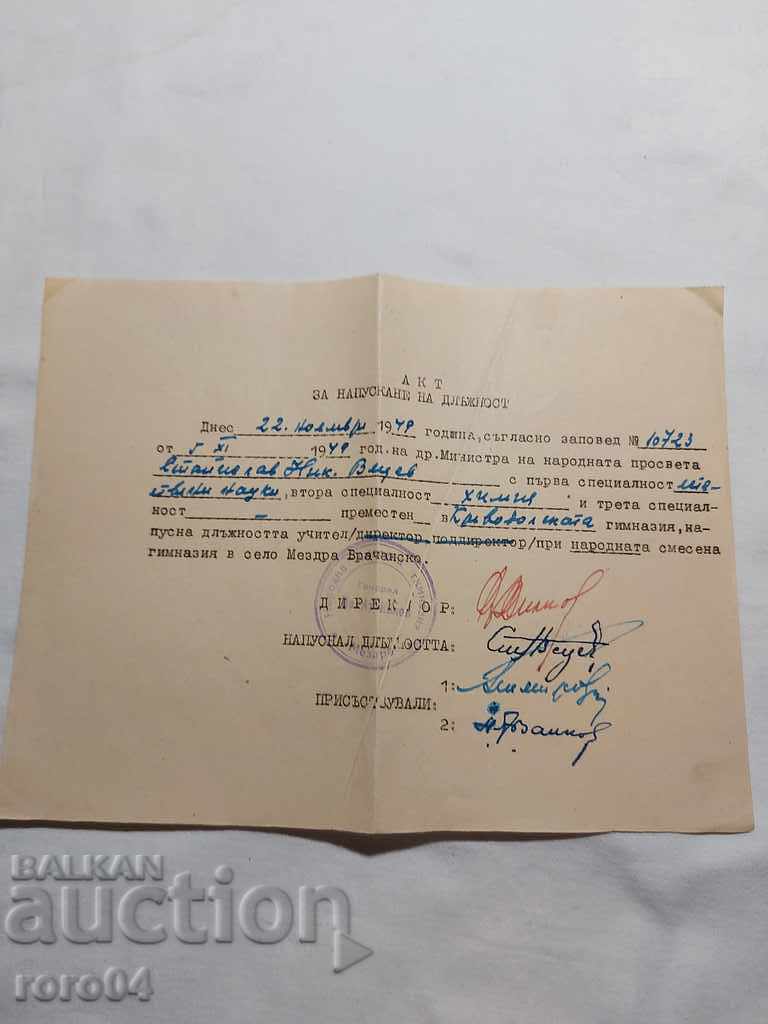 АКТ
ЗА НАПУСКАНЕ НА ДЛЪЖНОСТ
Днес 22. ноември 1949 година, съгласно заповед № 10723
от 5 XI 1949 год. на др. Министра на народната просвета
Станислав Ник. с първа специалност
науки, втора специалност химия и трета специал-
ност - преместен в Криводолската гимназия, на-
пусна длъжността учител/директор, поддиректор/при народната смесена
гимназия в село Мездра Врачанско.
ДИРЕКТОР:
НАПУСНАЛ ДЛЪЖНОСТТА:
1:
ПРИСЪСТВУВАЛИ:
2:
BALKAN
auction
roro04